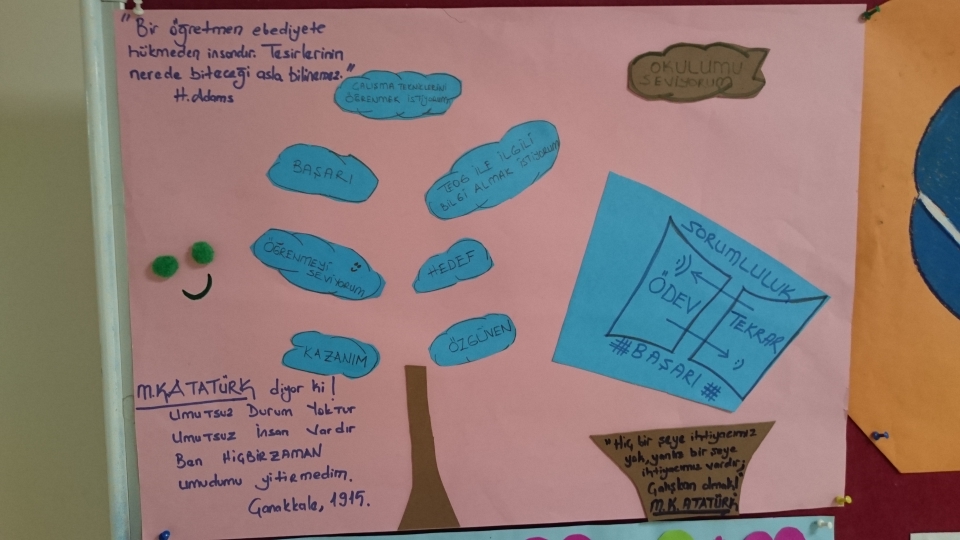 "Bir öğretmen ebediyete
hükmeden insandır. Tesirlerinin
nerede biteceği asla bilinemez."
H. Adams
ÇALIŞMA TEKNİKLERİNİ
ÖĞRENMEK İSTİYORUM
OKULUMU
SEVİYORUM
BAŞARI
TEOG İLE İLGİLİ
BİLGİ ALMAK İSTİYORUM
ÖĞRENMEYİ
SEVİYORUM
HEDEF
KAZANIM
ÖZGÜVEN
SORUMLULUK
ÖDEV
TEKRAR
#BAŞARI#
M.K.ATATÜRK diyor ki!
Umutsuz Durum Yoktur
Umutsuz İnsan Vardır
Ben HİÇBİRZAMAN
umudumu yitirmedim.
Çanakkale, 1915.
"Hiç bir şeye ihtiyacımız
yok, yanlız bir şeye
ihtiyacımız vardır;
Çalışkan olmak!"
M.K.ATATÜRK